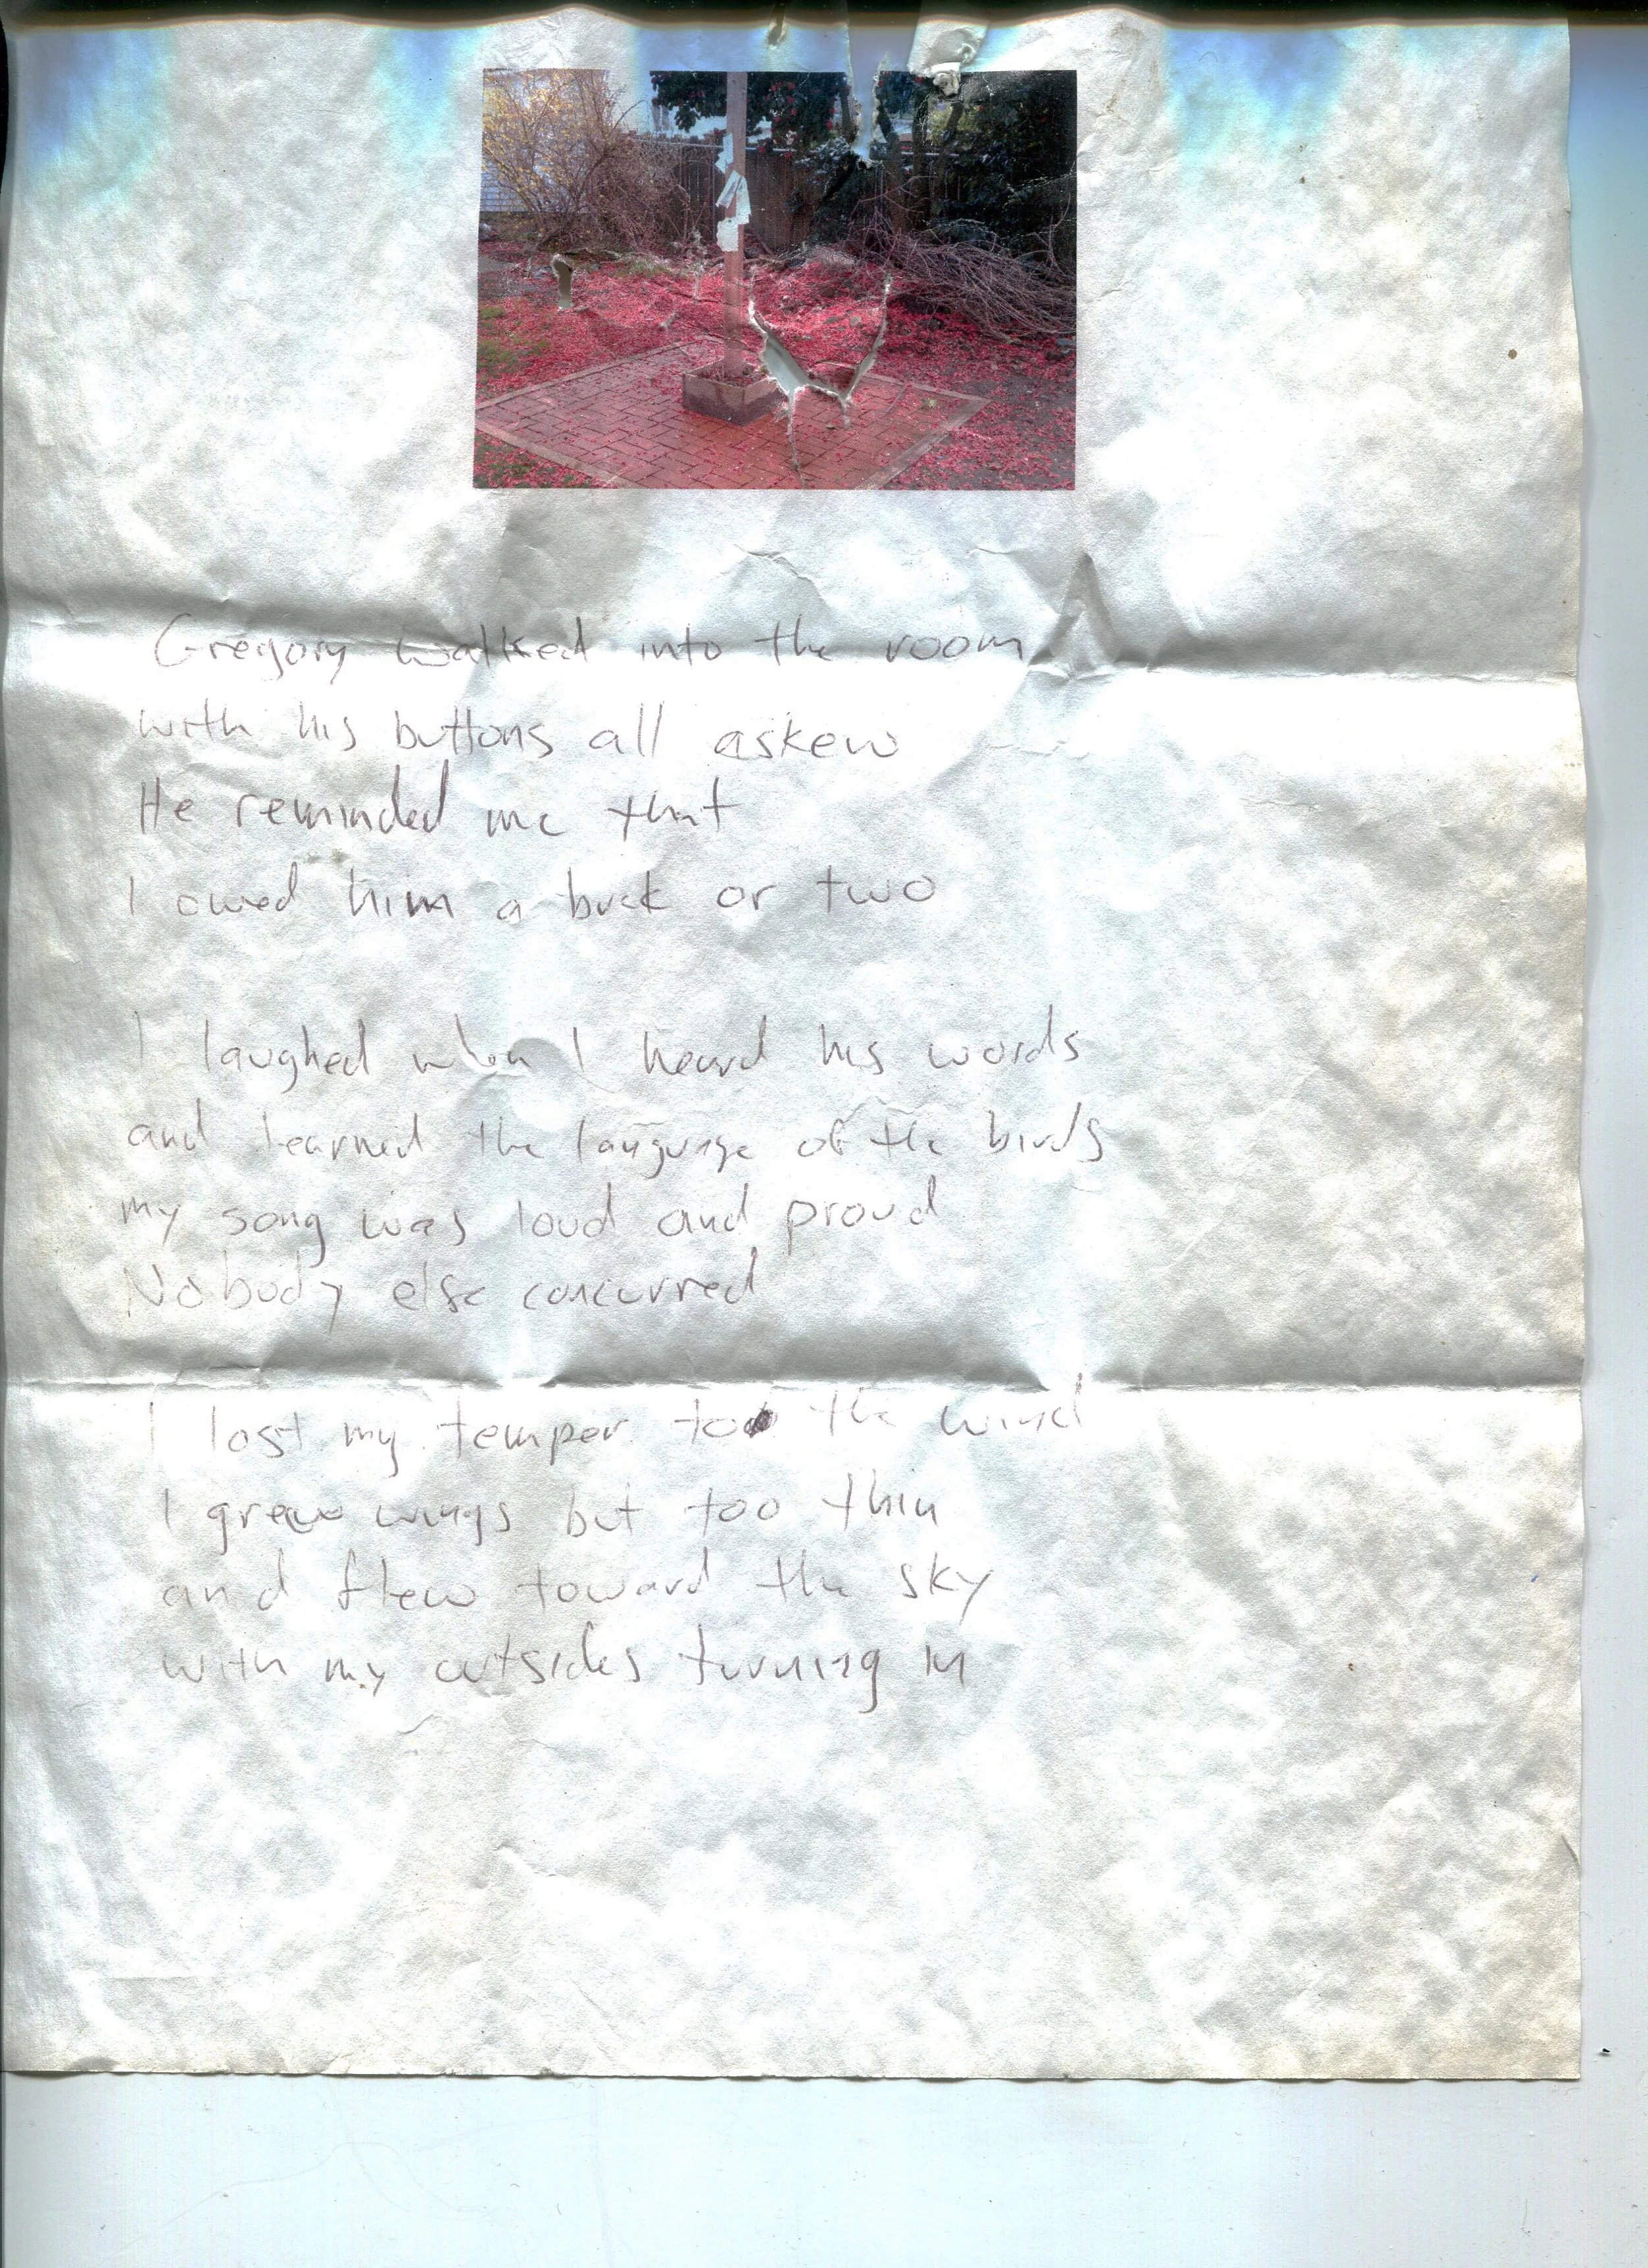 Gregory walked into the room
with his buttons all askew
He reminded me that
I owed him a buck or two
I laughed when I heard his words
and learned the language of the birds
my song was loud and proud
Nobody else concurred
I lost my temper to the wind
I grew wings but too thin
and flew toward the sky
with my outsides turning in